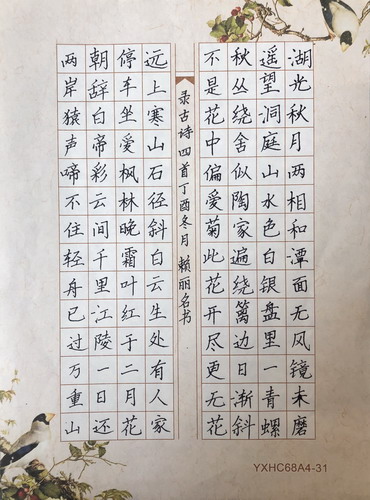 湖光秋月两相和潭面无风镜未磨
遥望洞庭山水色白银盘里一青螺
秋丛绕舍似陶家遍绕篱边日渐斜
不是花中偏爱菊此花开尽更无花
录古诗四首丁酉冬月 赖丽名书
远上寒山石径斜白云生处有人家
停车坐爱枫林晚霜叶红于二月花
朝辞白帝彩云间千里江陵一日还
两岸猿声啼不住轻舟已过万重山
YXHC68A4-31